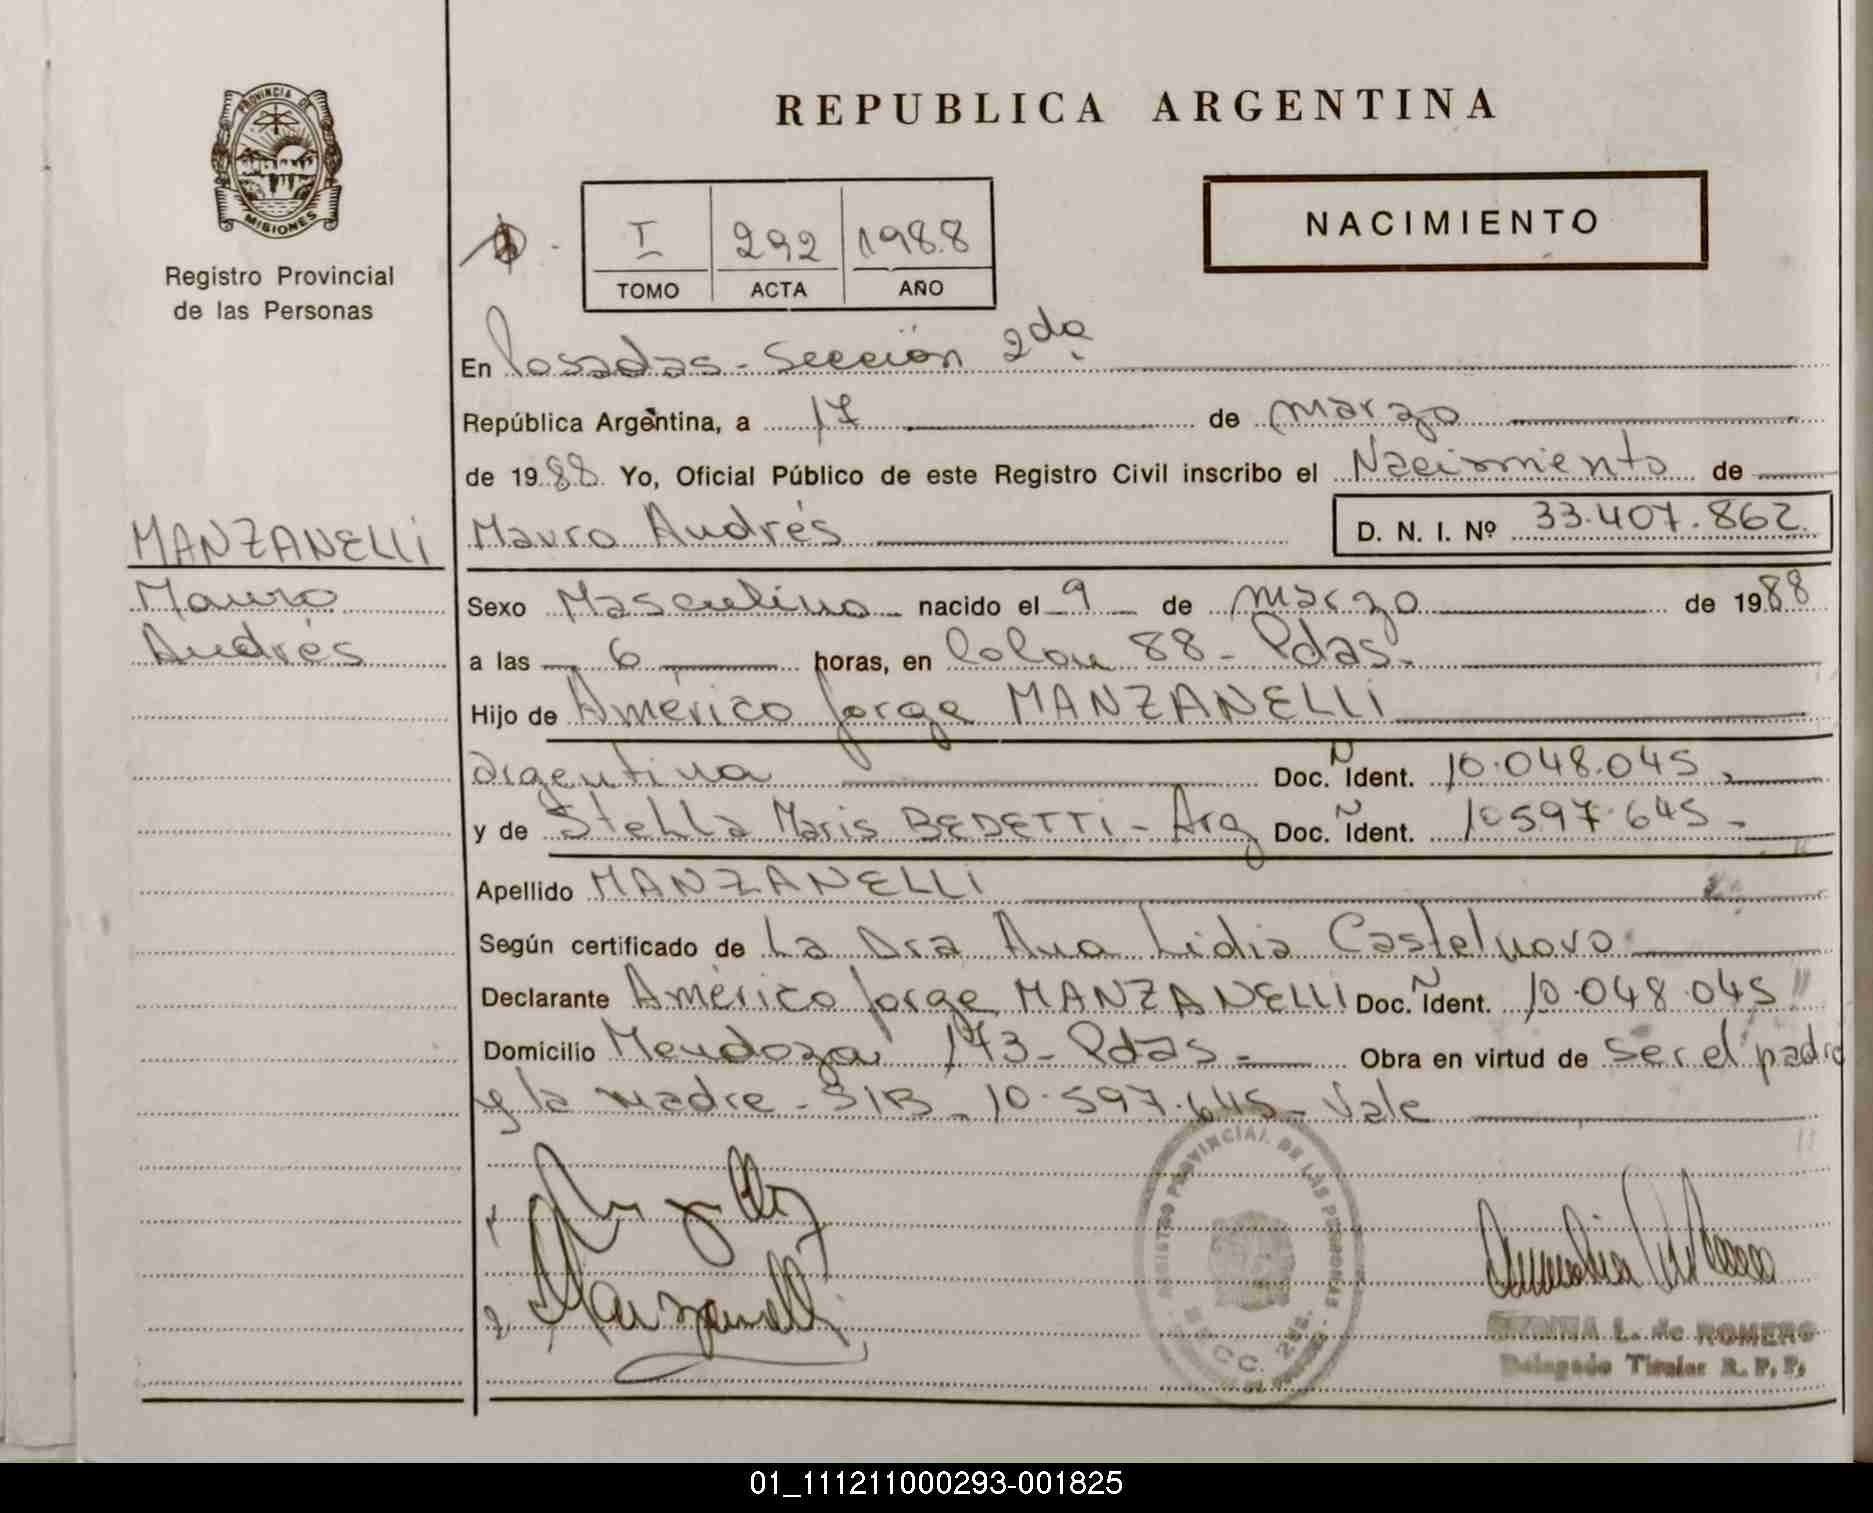 PROVINCIA DE
MISIONES
Registro Provincial
de las Personas
REPUBLICA ARGENTINA
NACIMIENTO
I 292 1988
TOMO ACTA AÑO
En Posadas - Sección 2da
República Argentina, a 17 de marzo
de 1988 Yo, Oficial Público de este Registro Civil inscribo el Nacimiento de
MANZANELLI
Mauro
Andrés
Mauro Andrés D. N. I. Nº 33.407.862.
Sexo Masculino nacido el 9 de marzo de 1988
a las 6 horas, en Colon 88 - Pdas.
Hijo de Américo Jorge MANZANELLI
argentina Doc. Ñ Ident. 10.048.045
y de Stella Maris BEDETTI - Arg Doc. Ñ Ident. 10597.645
Apellido MANZANELLI
Según certificado de La Dra Ana Lidia Castelnovo
Declarante Américo Jorge MANZANELLI Doc. Ñ Ident. 10.048.045
Domicilio Mendoza 173 - Pdas - Obra en virtud de ser el padre
y la madre - 10.597.645 - Vale
Manzanelli
REGISTRO PROVINCIAL DE LAS PERSONAS
SECC. 2da.
L. de ROMERO
Delegado Titular R. P. P.
01_111211000293-001825